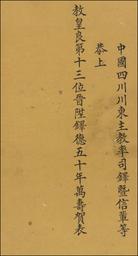 中國四川川東主教率司鐸暨信輩等
恭上
教皇良第十三位晉陞鐸德五十年萬壽賀表